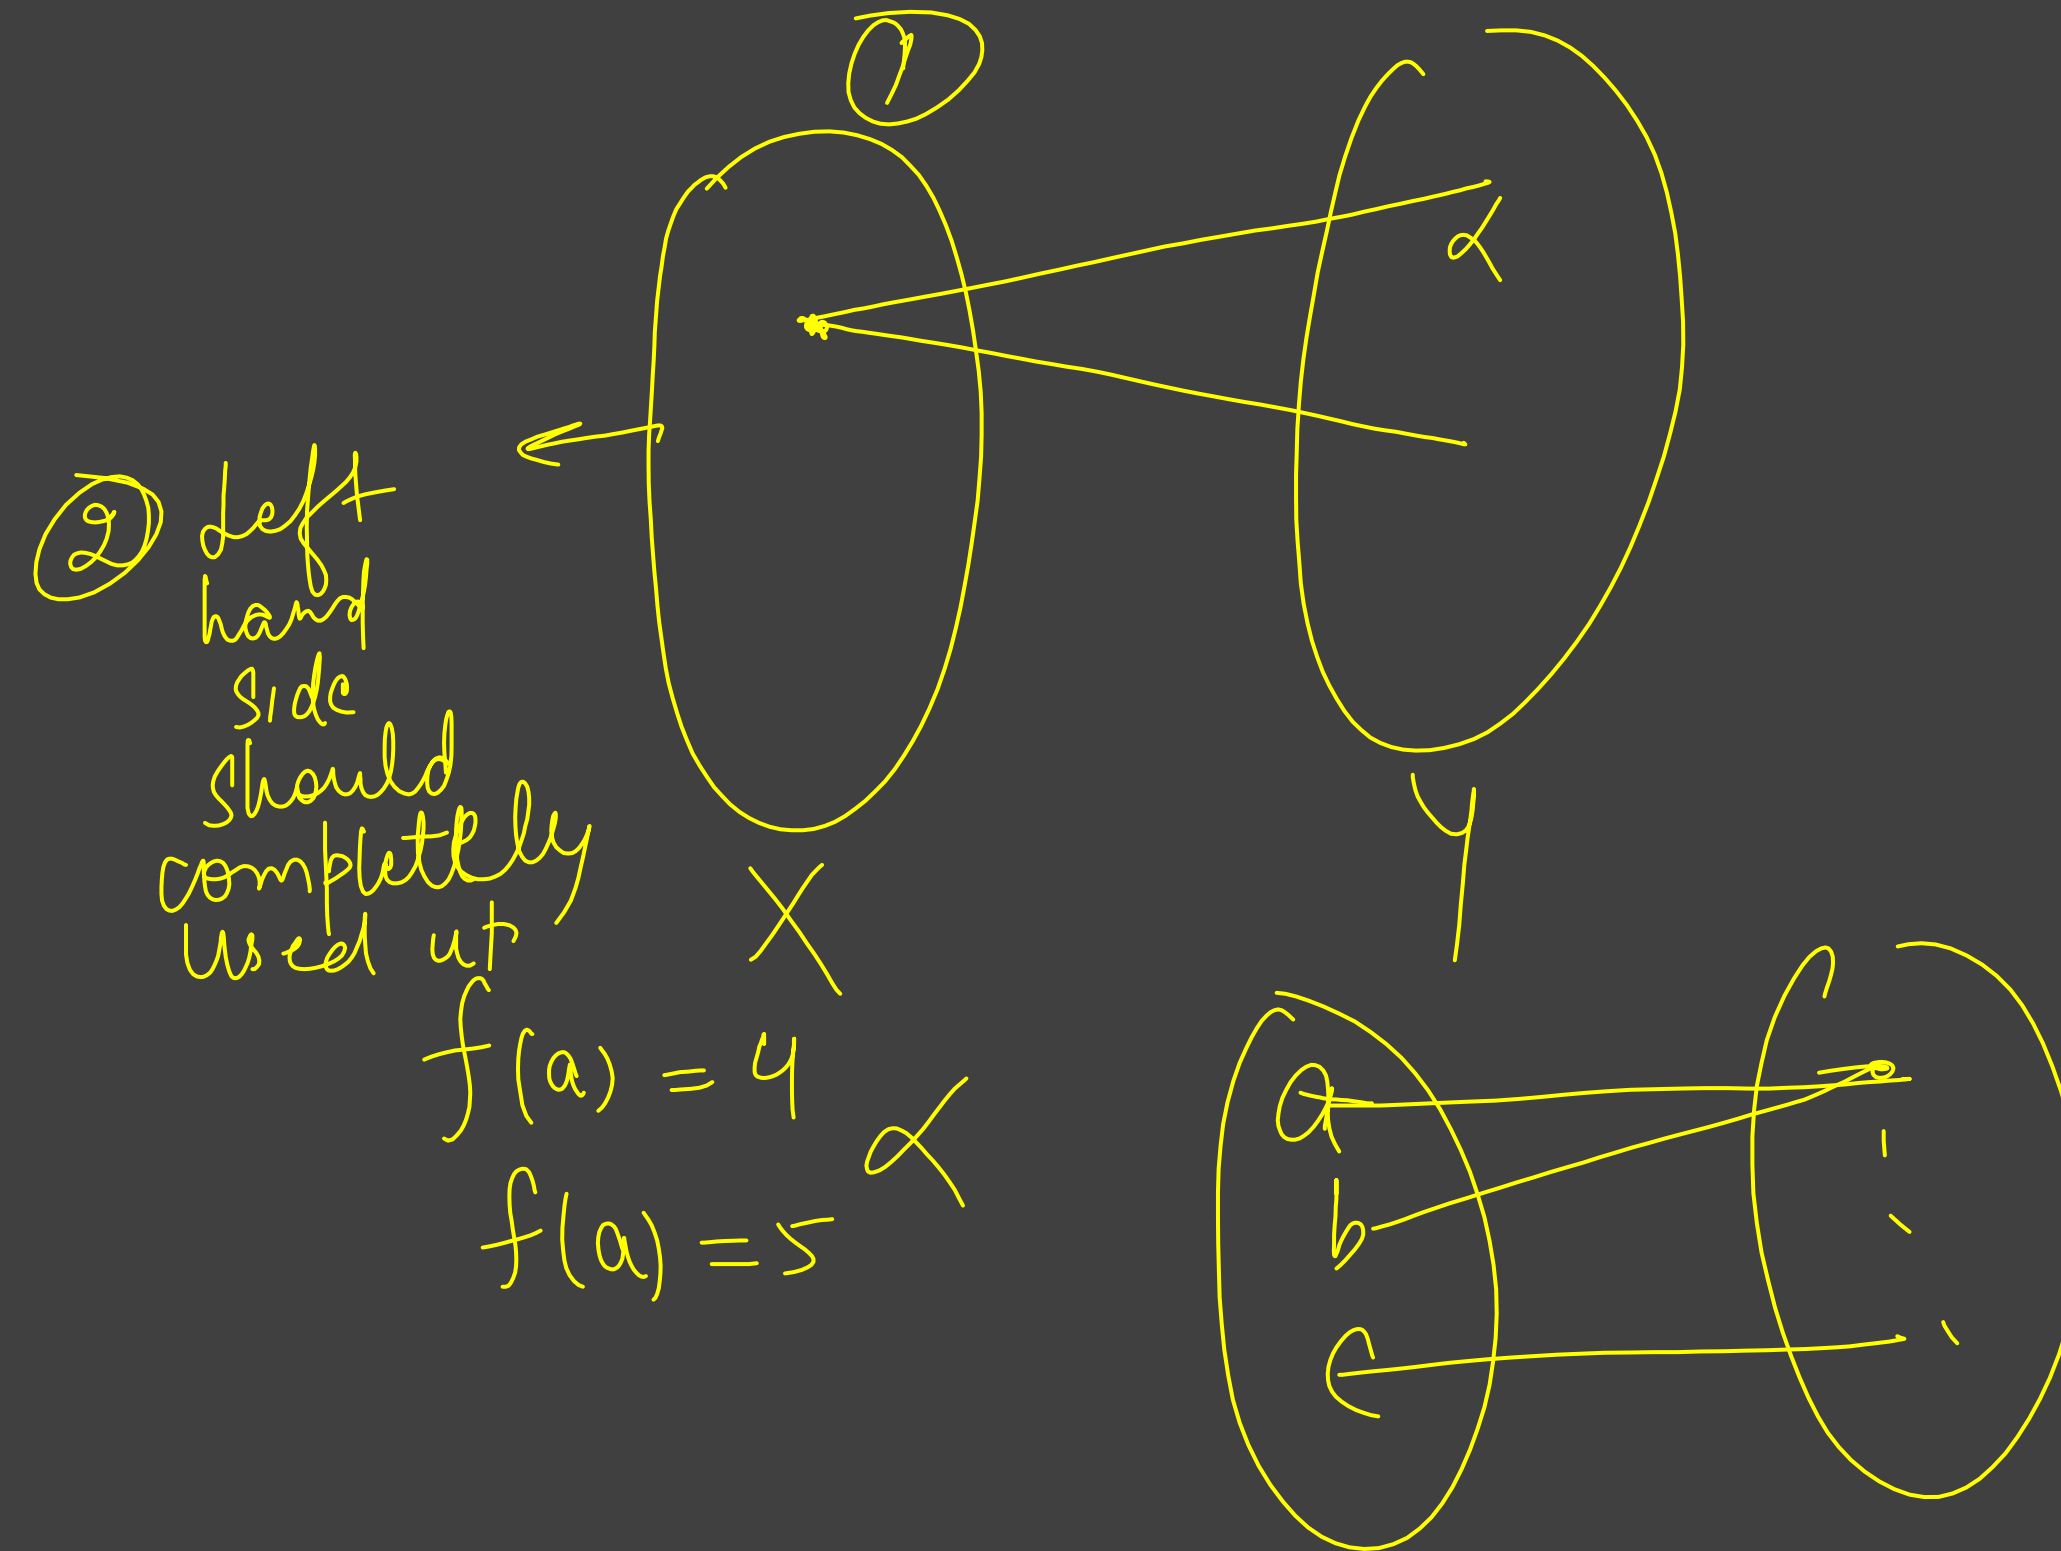 1
2 Left
hand
side
should
completely
used up
X
Y
f(a) = 4
f(a) = 5
a
b
c